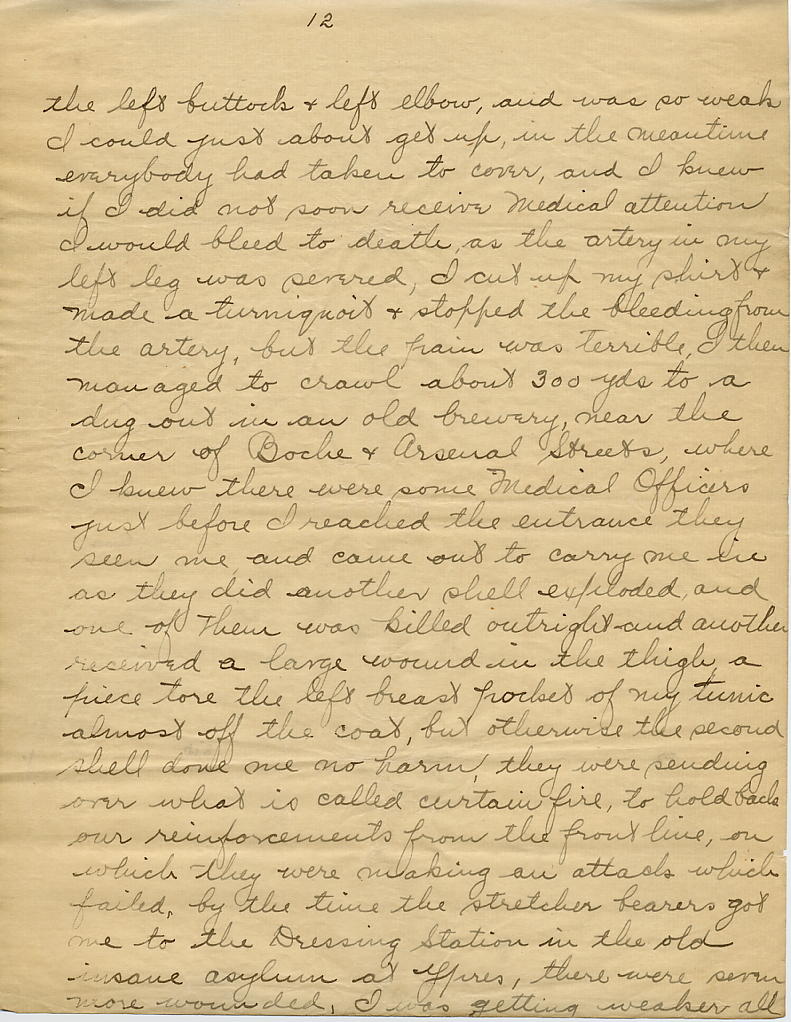 12
the left buttock & left elbow, and was so weak
I could just about get up, in the meantime
everybody had taken to cover, and I knew
if I did not soon receive Medical attention
I would bleed to death, as the artery in my
left leg was severed, I cut up my shirt &
made a turniquoit & stopped the bleeding from
the artery, but the pain was terrible, I then
managed to crawl about 300 yds to a
dug out in an old brewery, near the
corner of Boche & Arsenal Streets, where
I knew there were some Medical Officers
just before I reached the entrance they
seen me, and came out to carry me in
as they did another shell exploded, and
one of them was killed outright and another
received a large wound in the thigh, a
piece tore the left breast pocket of my tunic
almost off the coat, but otherwise the second
shell done me no harm, they were sending
over what is called curtain fire, to hold back
our reinforcements from the front line, on
which they were making an attack which
failed, by the time the stretcher bearers got
me to the Dressing Station in the old
insane asylum at Ypres, there were seven
more wounded, I was getting weaker all